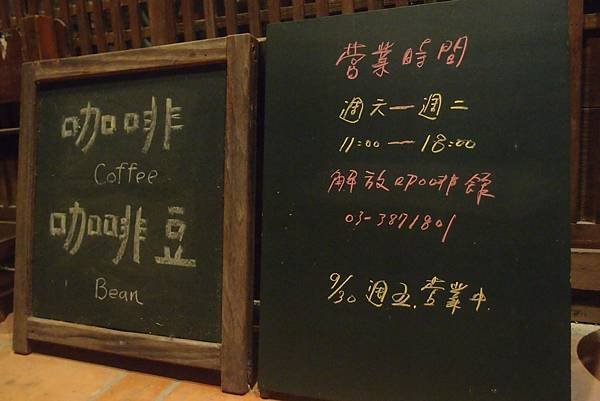 咖啡
Coffee
咖啡豆
Bean
營業時間
週六一週二
11:00—18:00
解放咖啡館
03-3871801
9/30週五.營業中.